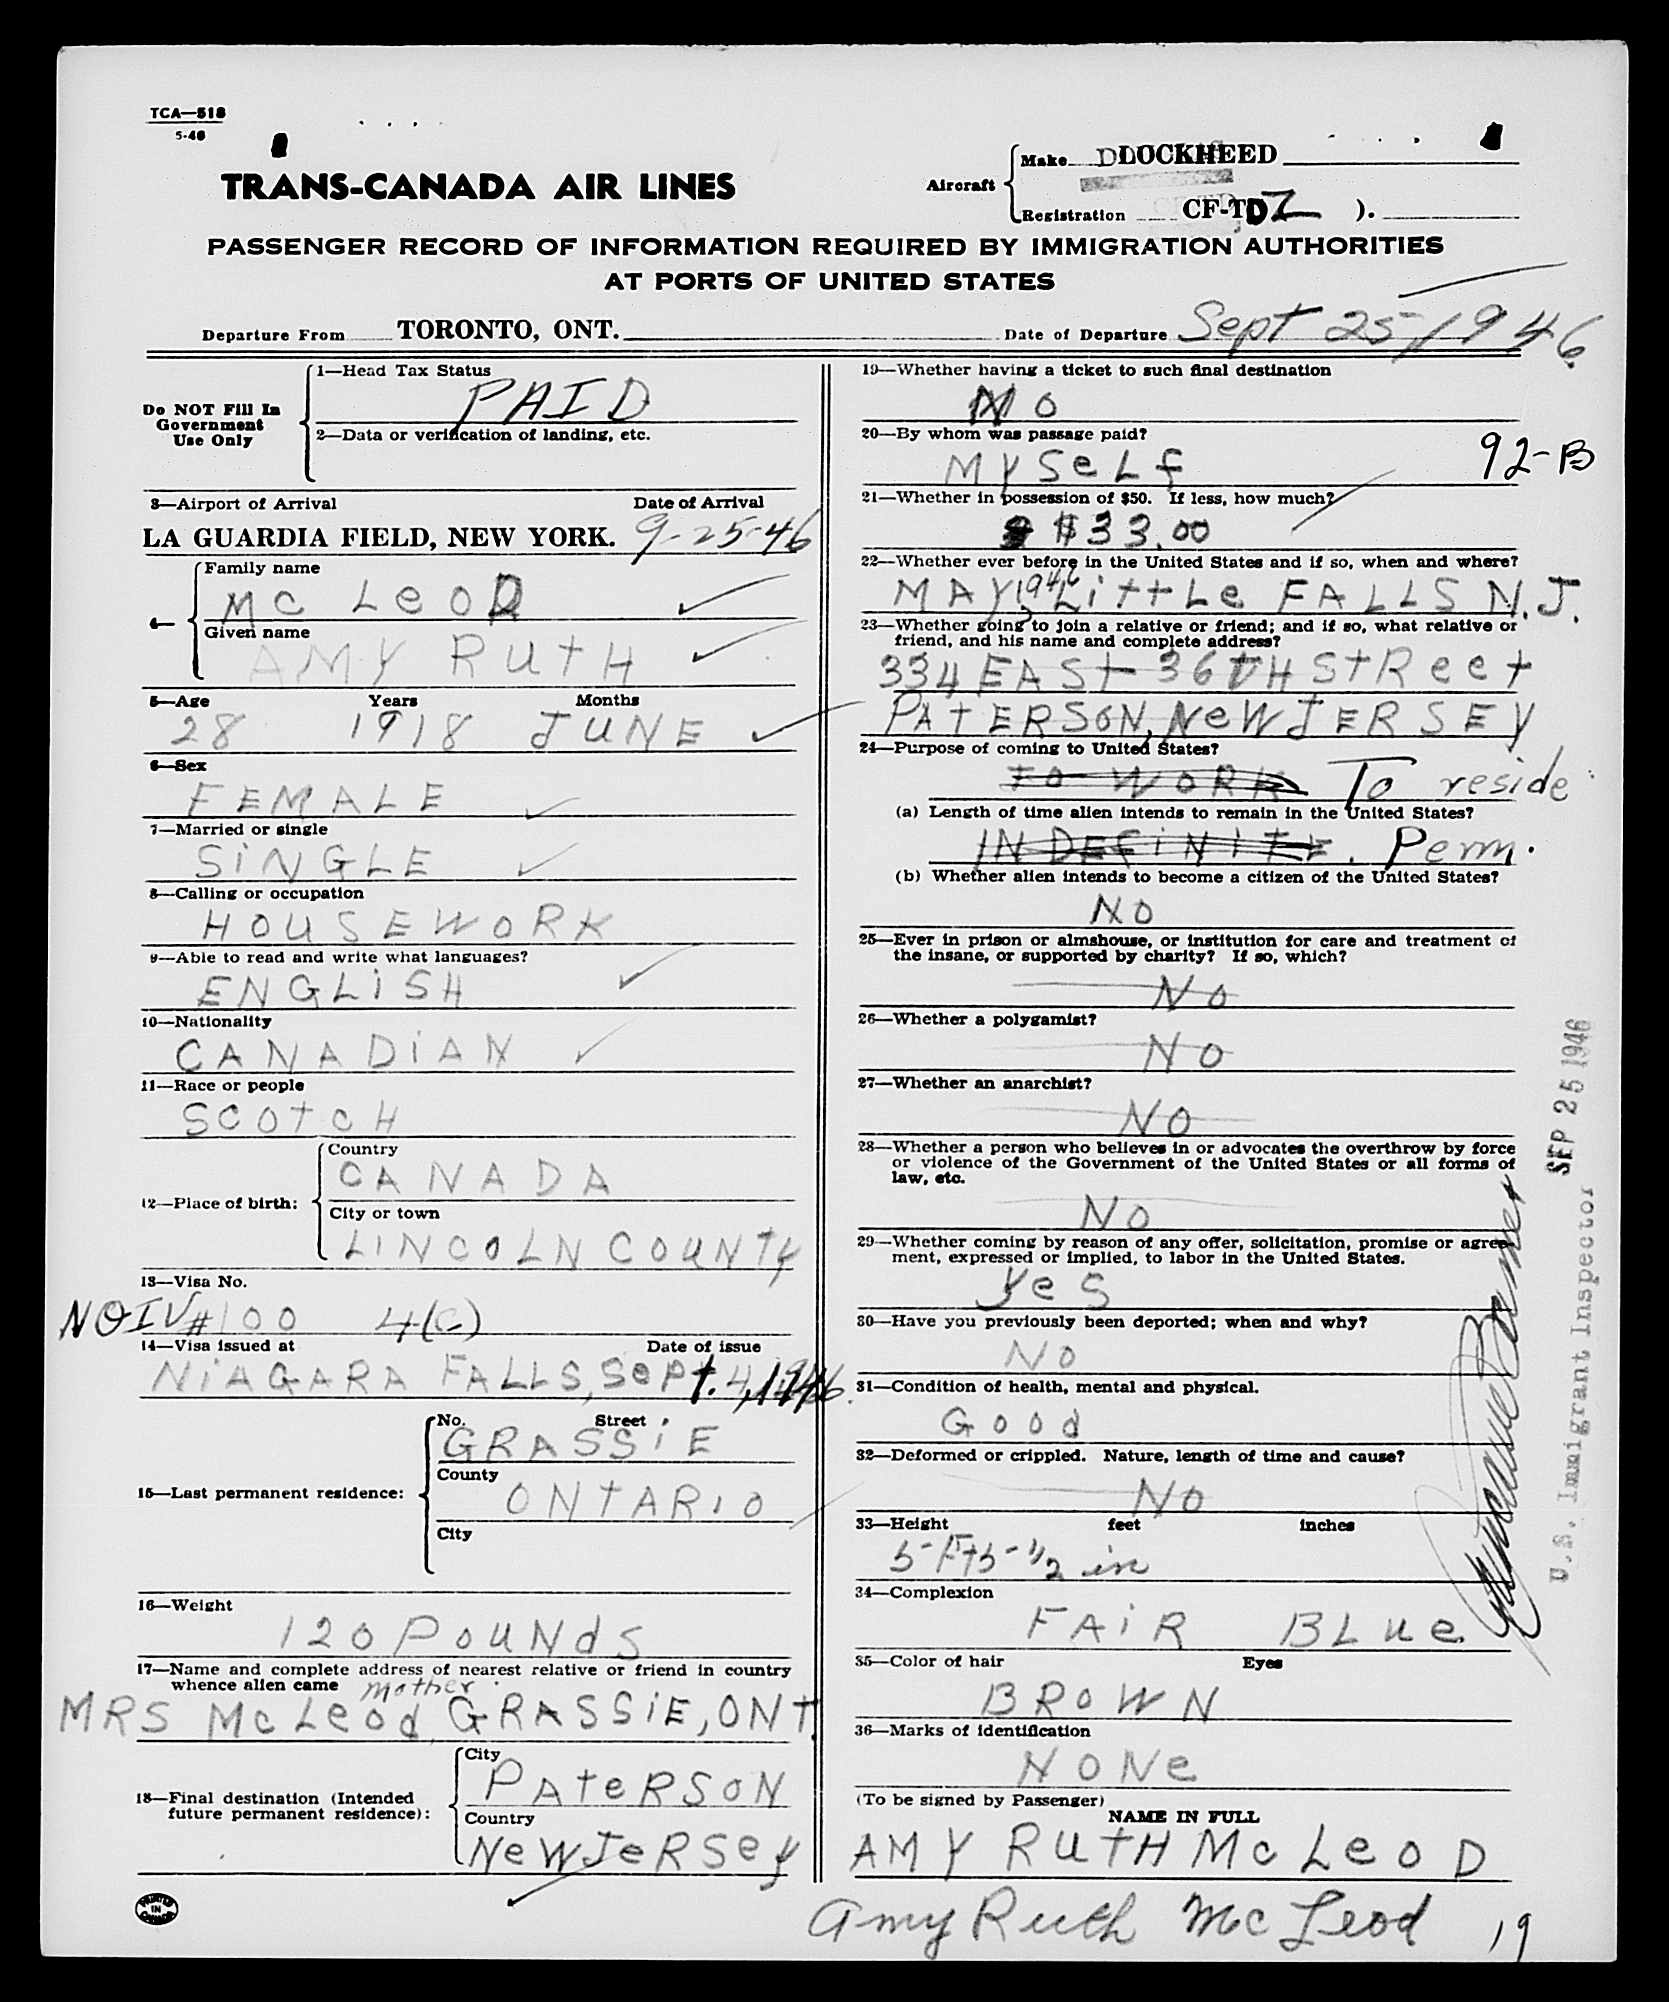 TCA—518
5-46
TRANS-CANADA AIR LINES
Aircraft
Make LOCKHEED
Registration CF-TDZ ).
PASSENGER RECORD OF INFORMATION REQUIRED BY IMMIGRATION AUTHORITIES
AT PORTS OF UNITED STATES
Departure From TORONTO, ONT. Date of Departure Sept 25, 1946
Do NOT Fill In
Government
Use Only
1—Head Tax Status
PAID
2—Data or verification of landing, etc.
3—Airport of Arrival Date of Arrival
LA GUARDIA FIELD, NEW YORK. 9-25-46
4—
Family name
Mc LeOD
Given name
AMY RUtH
5—Age Years Months
28 1918 JUNE
6—Sex
FEMALE
7—Married or single
SiNGLE
8—Calling or occupation
HOUSEWORK
9—Able to read and write what languages?
ENGLiSH
10—Nationality
CANADiAN
11—Race or people
SCOtCH
12—Place of birth:
Country
CANADA
City or town
LINCOLN COUNTy
13—Visa No.
NQIV #100 4(C)
14—Visa issued at Date of issue
NiAGARA FALLS, Sept. 4, 1946.
15—Last permanent residence:
No. Street
GRASSiE
County
ONtARiO
City
16—Weight
120 POUNdS
17—Name and complete address of nearest relative or friend in country
whence alien came mother
MRS McLeod, GRASSiE, ONT.
18—Final destination (Intended
future permanent residence):
City
PAteRSON
Country
NeW JeRSey
PRINTED
IN
CANADA
19—Whether having a ticket to such final destination
NO
20—By whom was passage paid?
MYSeLf
92-B
21—Whether in possession of $50. If less, how much?
$33.00
22—Whether ever before in the United States and if so, when and where?
MAY, 1946 LittLe FALLS N.J.
23—Whether going to join a relative or friend; and if so, what relative or
friend, and his name and complete address?
334 EASt 36tH StReet
PAtERSON, NeW JERSEY
24—Purpose of coming to United States?
tO WORK To reside
(a) Length of time alien intends to remain in the United States?
INDEFiNITE. Perm.
(b) Whether alien intends to become a citizen of the United States?
NO
25—Ever in prison or almshouse, or institution for care and treatment of
the insane, or supported by charity? If so, which?
No
26—Whether a polygamist?
NO
27—Whether an anarchist?
NO
28—Whether a person who believes in or advocates the overthrow by force
or violence of the Government of the United States or all forms of
law, etc.
NO
29—Whether coming by reason of any offer, solicitation, promise or agree-
ment, expressed or implied, to labor in the United States.
YeS
30—Have you previously been deported; when and why?
NO
31—Condition of health, mental and physical.
Good
32—Deformed or crippled. Nature, length of time and cause?
NO
33—Height feet inches
5-Ft 5-1/2 in
34—Complexion
FAiR BLue
35—Color of hair Eyes
BROWN
36—Marks of identification
NONe
(To be signed by Passenger)
NAME IN FULL
AMY RUtH McLeOD
Amy Ruth McLeod
19
SEP 25 1946
U.S. Immigrant Inspector